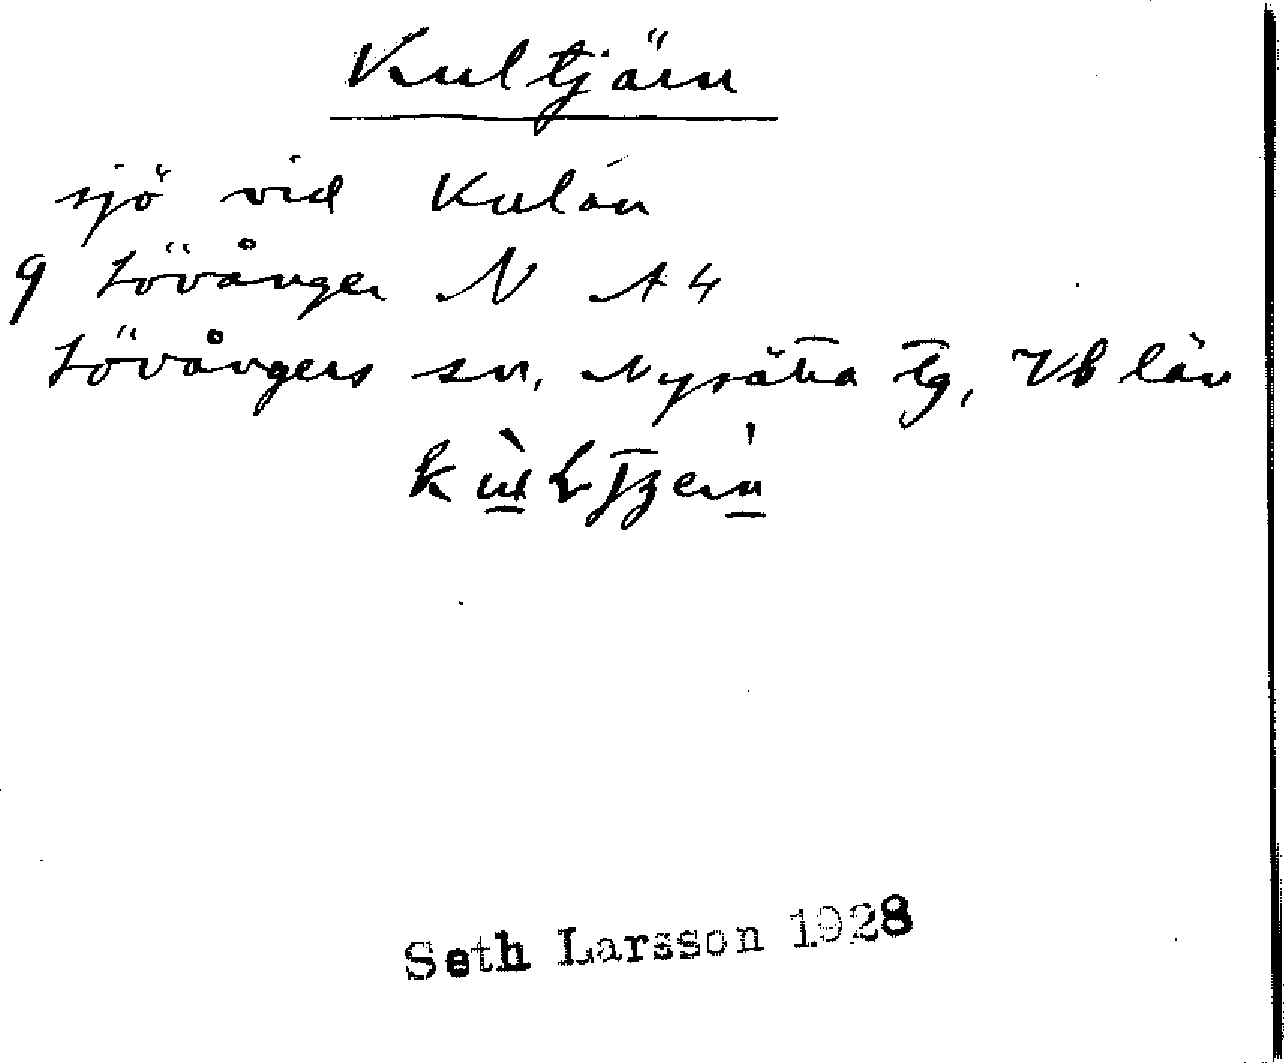 Kultjärn
sjö vid Kulån
9 Lövånger N A 4
Lövångers sn, Nysätra tg, Vb län
Seth Larsson 1928